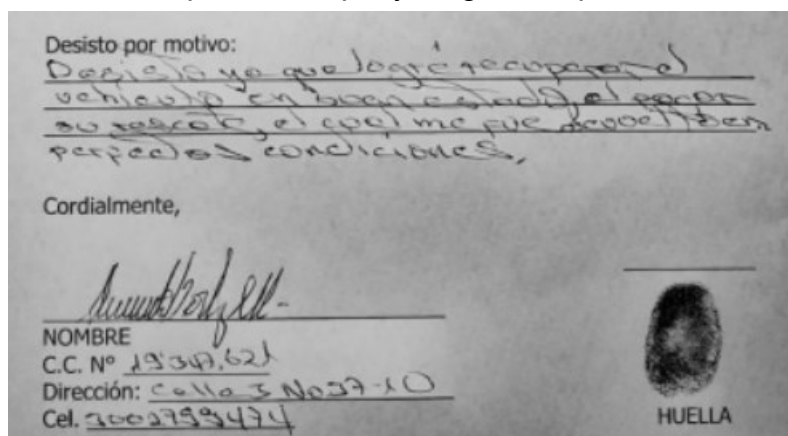 Desisto por motivo:
Desisto ya que logré recuperar el
vehiculo en buen estado, al pagar
su rescate, el cual me fue devuelto en
perfectas condiciones,
Cordialmente,
NOMBRE
C.C. Nº 19'347.621
Dirección: Calle 3 No 37-10
Cel. 3002799474
HUELLA